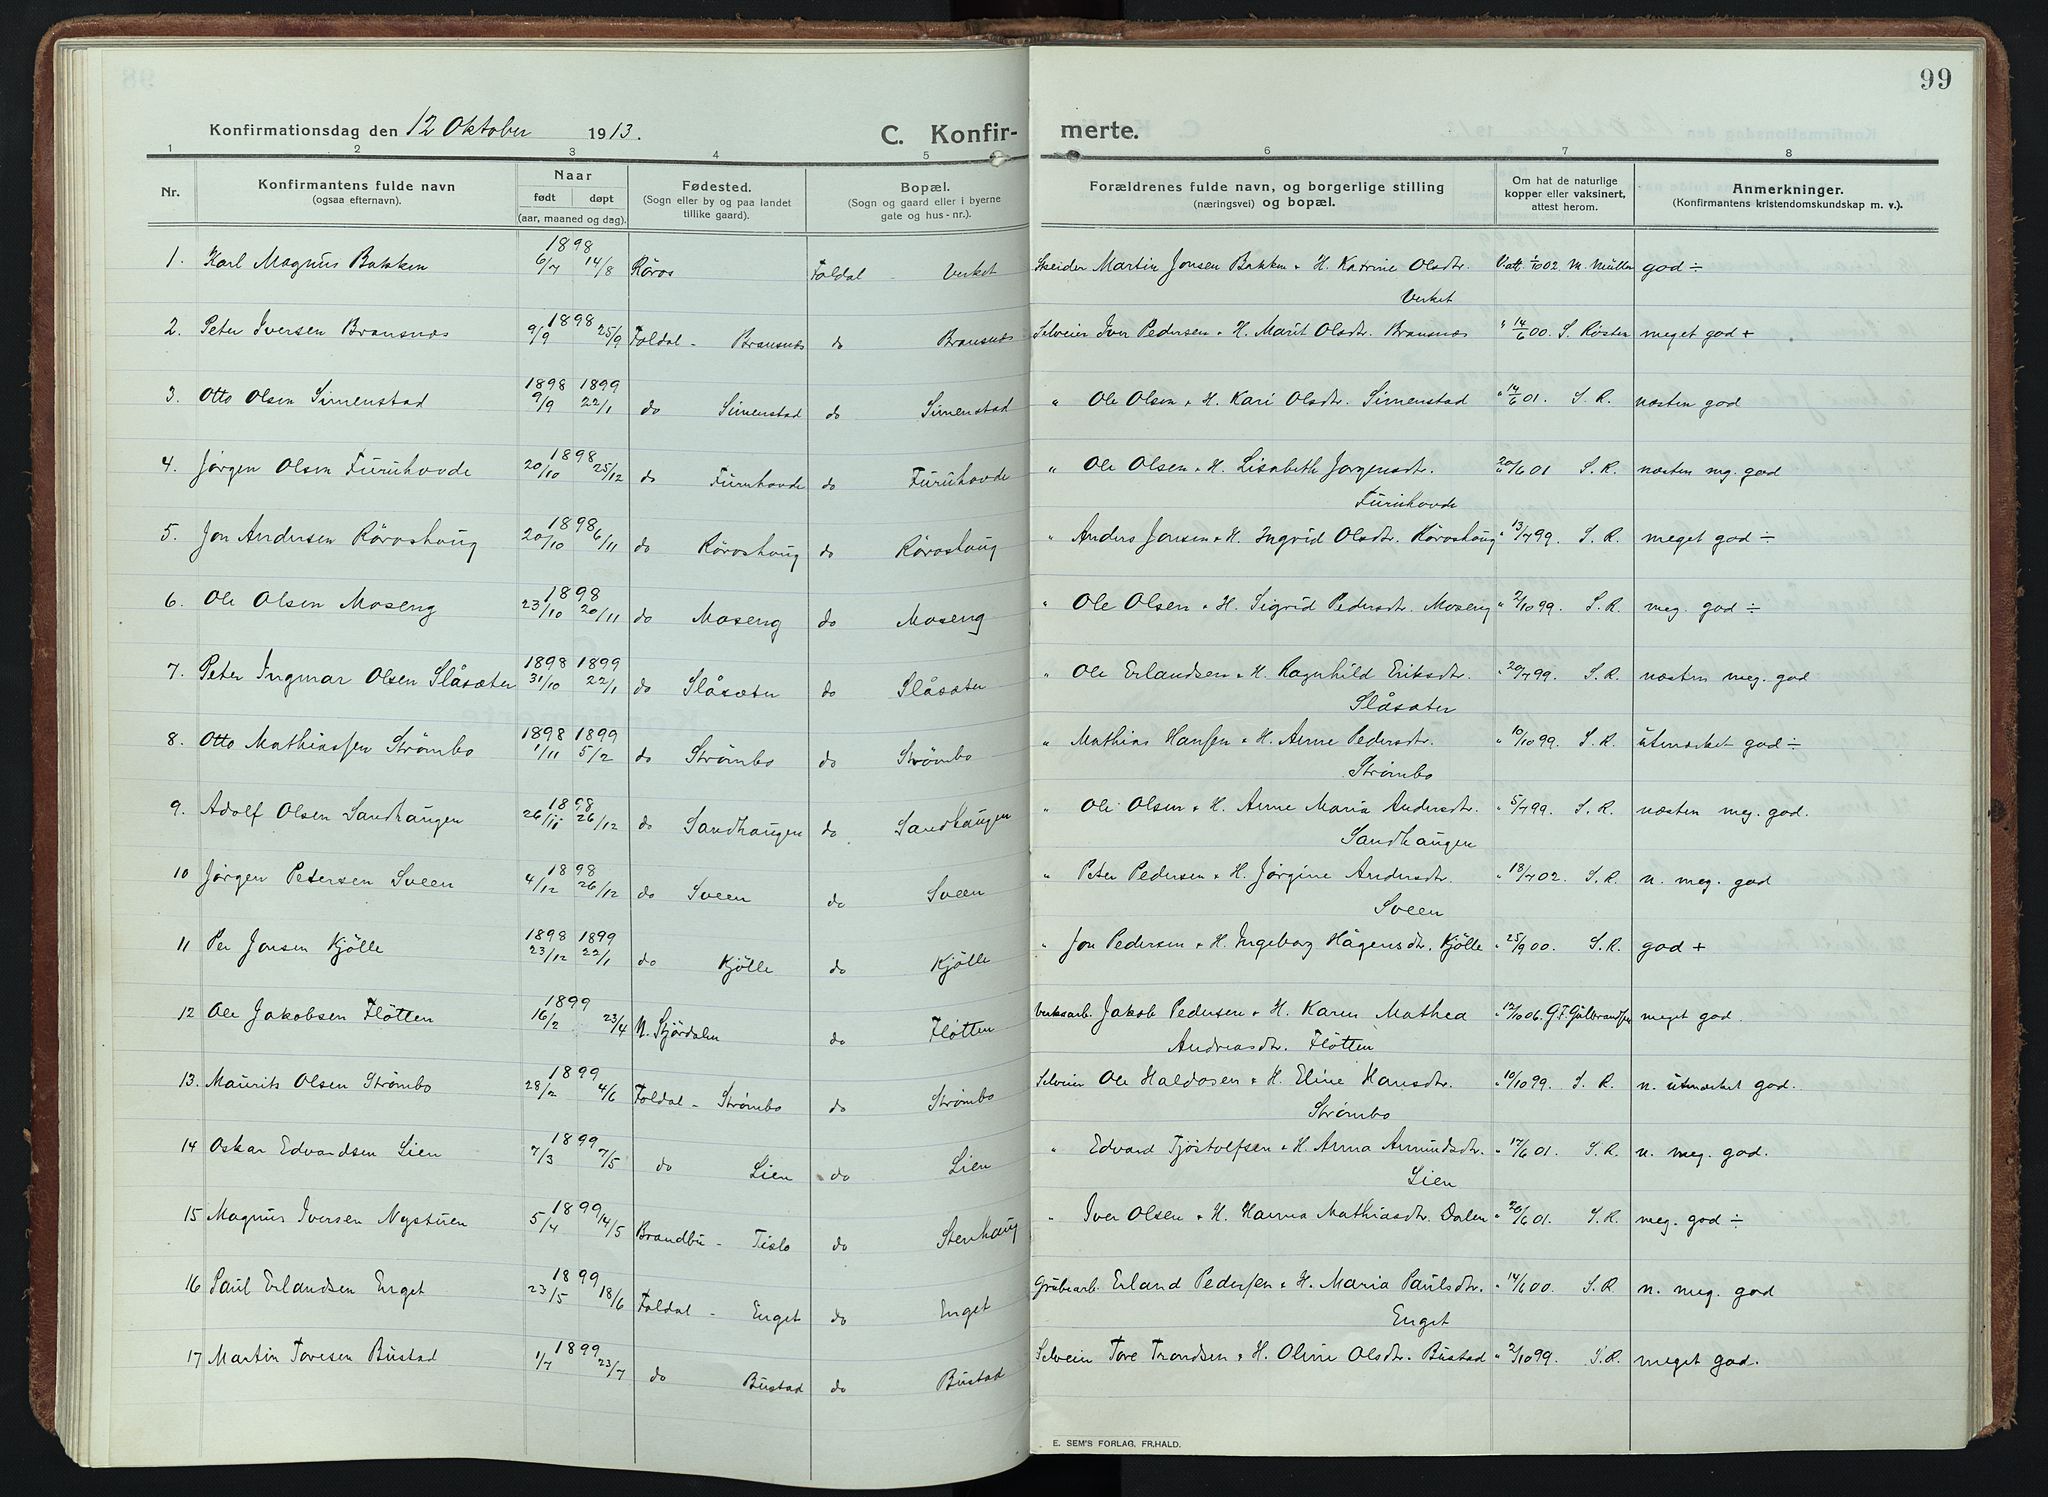 99
Konfirmationsdag den 12 Oktober 1913. C. Konfirmerte.
1 2 3 4 5 6 7 8
Nr. Konfirmantens fulde navn (ogsaa efternavn). Naar født døpt (aar, maaned og dag). Fødested. (Sogn eller by og paa landet tillike gaard). Bopæl. (Sogn og gaard eller i byerne gate og hus-nr.). Forældrenes fulde navn, og borgerlige stilling (næringsvei) og bopæl. Om hat de naturlige kopper eller vaksinert, attest herom. Anmerkninger. (Konfirmantens kristendomskundskap m. v.).
1. Karl Magnus Bakken 1898 6/7 14/8 Røros Foldal - Verket Skeider Martin Jonsen Bakken & H. Katrine Olsdtr. V.att. 1/10 02 M. Müller god ÷
Verket
2. Peter Iversen Bransnæs 1898 9/9 25/9 Foldal - Bransnæs do Bransnæs Selveier Iver Pedersen & H. Marit Olsdtr. Bransnæs " 14/6 00. S. Røsten meget god +
3. Otto Olsen Simenstad 1898 9/9 1899 22/1 do Simenstad do Simenstad " Ole Olsen & H. Kari Olsdtr. Simenstad " 14/6 01. S. R. næsten god
4. Jørgen Olsen Furuhovde 1898 20/10 25/12 do Furuhovde do Furuhovde " Ole Olsen & H. Lisabeth Jørgensdtr. " 20/6 01 S. R. næsten meg. god
Furuhovde
5. Jon Andersen Røroshaug 1898 20/10 6/11 do Røroshaug do Røroshaug " Anders Jonsen & H. Ingrid Olsdtr. Røroshaug " 13/7 99. S. R. meget god ÷
6. Ole Olsen Moseng 1898 23/10 20/11 do Moseng do Moseng " Ole Olsen & H. Sigrid Pedersdtr. Moseng " 2/10 99. S. R. meg. god ÷
7. Peter Ingmar Olsen Slåsæter 1898 31/10 1899 22/1 do Slåsæter do Slåsæter " Ole Erlandsen & H. Ragnhild Eriksdtr. " 20/7 99. S. R. næsten meg. god
Slåsæter
8. Otto Mathiassen Strømbo 1898 1/11 1899 5/2 do Strømbo do Strømbo " Mathias Hansen & H. Anne Pedersdtr. " 10/10 99. S. R. utmærket god ÷
Strømbo
9. Adolf Olsen Sandhaugen 1898 26/11 26/12 do Sandhaugen do Sandhaugen " Ole Olsen & H. Anne Maria Andersdtr. " 5/7 99. S. R. næsten meg. god.
Sandhaugen
10 Jørgen Petersen Sveen 1898 4/12 26/12 do Sveen do Sveen " Peter Pedersen & H. Jørgine Andersdtr. " 18/7 02. S. R. n. meg. god
Sveen
11 Per Jonsen Kjølle 1898 23/12 1899 22/1 do Kjølle do Kjølle " Jon Pedersen & H. Ingeborg Hågensdtr. Kjølle " 25/9 00. S. R. god +
12 Ole Jakobsen Fløtten 1899 16/2 23/4 N. Stjørdalen do Fløtten Verksarb. Jakob Pedersen & H. Karen Mathea " 12/10 06. G. F. Gulbrandsen meget god.
Andreasdtr. Fløtten
13. Maurits Olsen Strømbo 1899 28/2 4/6 Foldal - Strømbo do Strømbo Selveier Ole Haldosen & H. Eline Hansdtr. " 10/10 99. S. R. n. utmærket god.
Strømbo
14 Oskar Edvardsen Lien 1899 7/3 7/5 do Lien do Lien " Edvard Tjøstolfsen & H. Anna Amundsdtr. " 17/6 01. S. R. n. meg. god.
Lien
15 Magnus Iversen Nystuen 1899 5/4 14/5 Brandbu - Tislo do Stenhaug " Iver Olsen & H. Hanna Mathiasdtr. Dalen " 20/6 01. S. R. meg. god ÷
16 Paul Erlandsen Enget 1899 23/5 18/6 Foldal - Enget do Enget Grubearb. Erland Pedersen & H. Maria Paulsdtr. " 14/6 00. S. R. n. meg. god
Enget
17 Martin Toresen Bustad 1899 1/7 23/7 do Bustad do Bustad Selveier Tore Trondsen & H. Oline Olsdtr. Bustad " 2/10 99. S. R. meget god.
E. SEM'S FORLAG, FR.HALD.